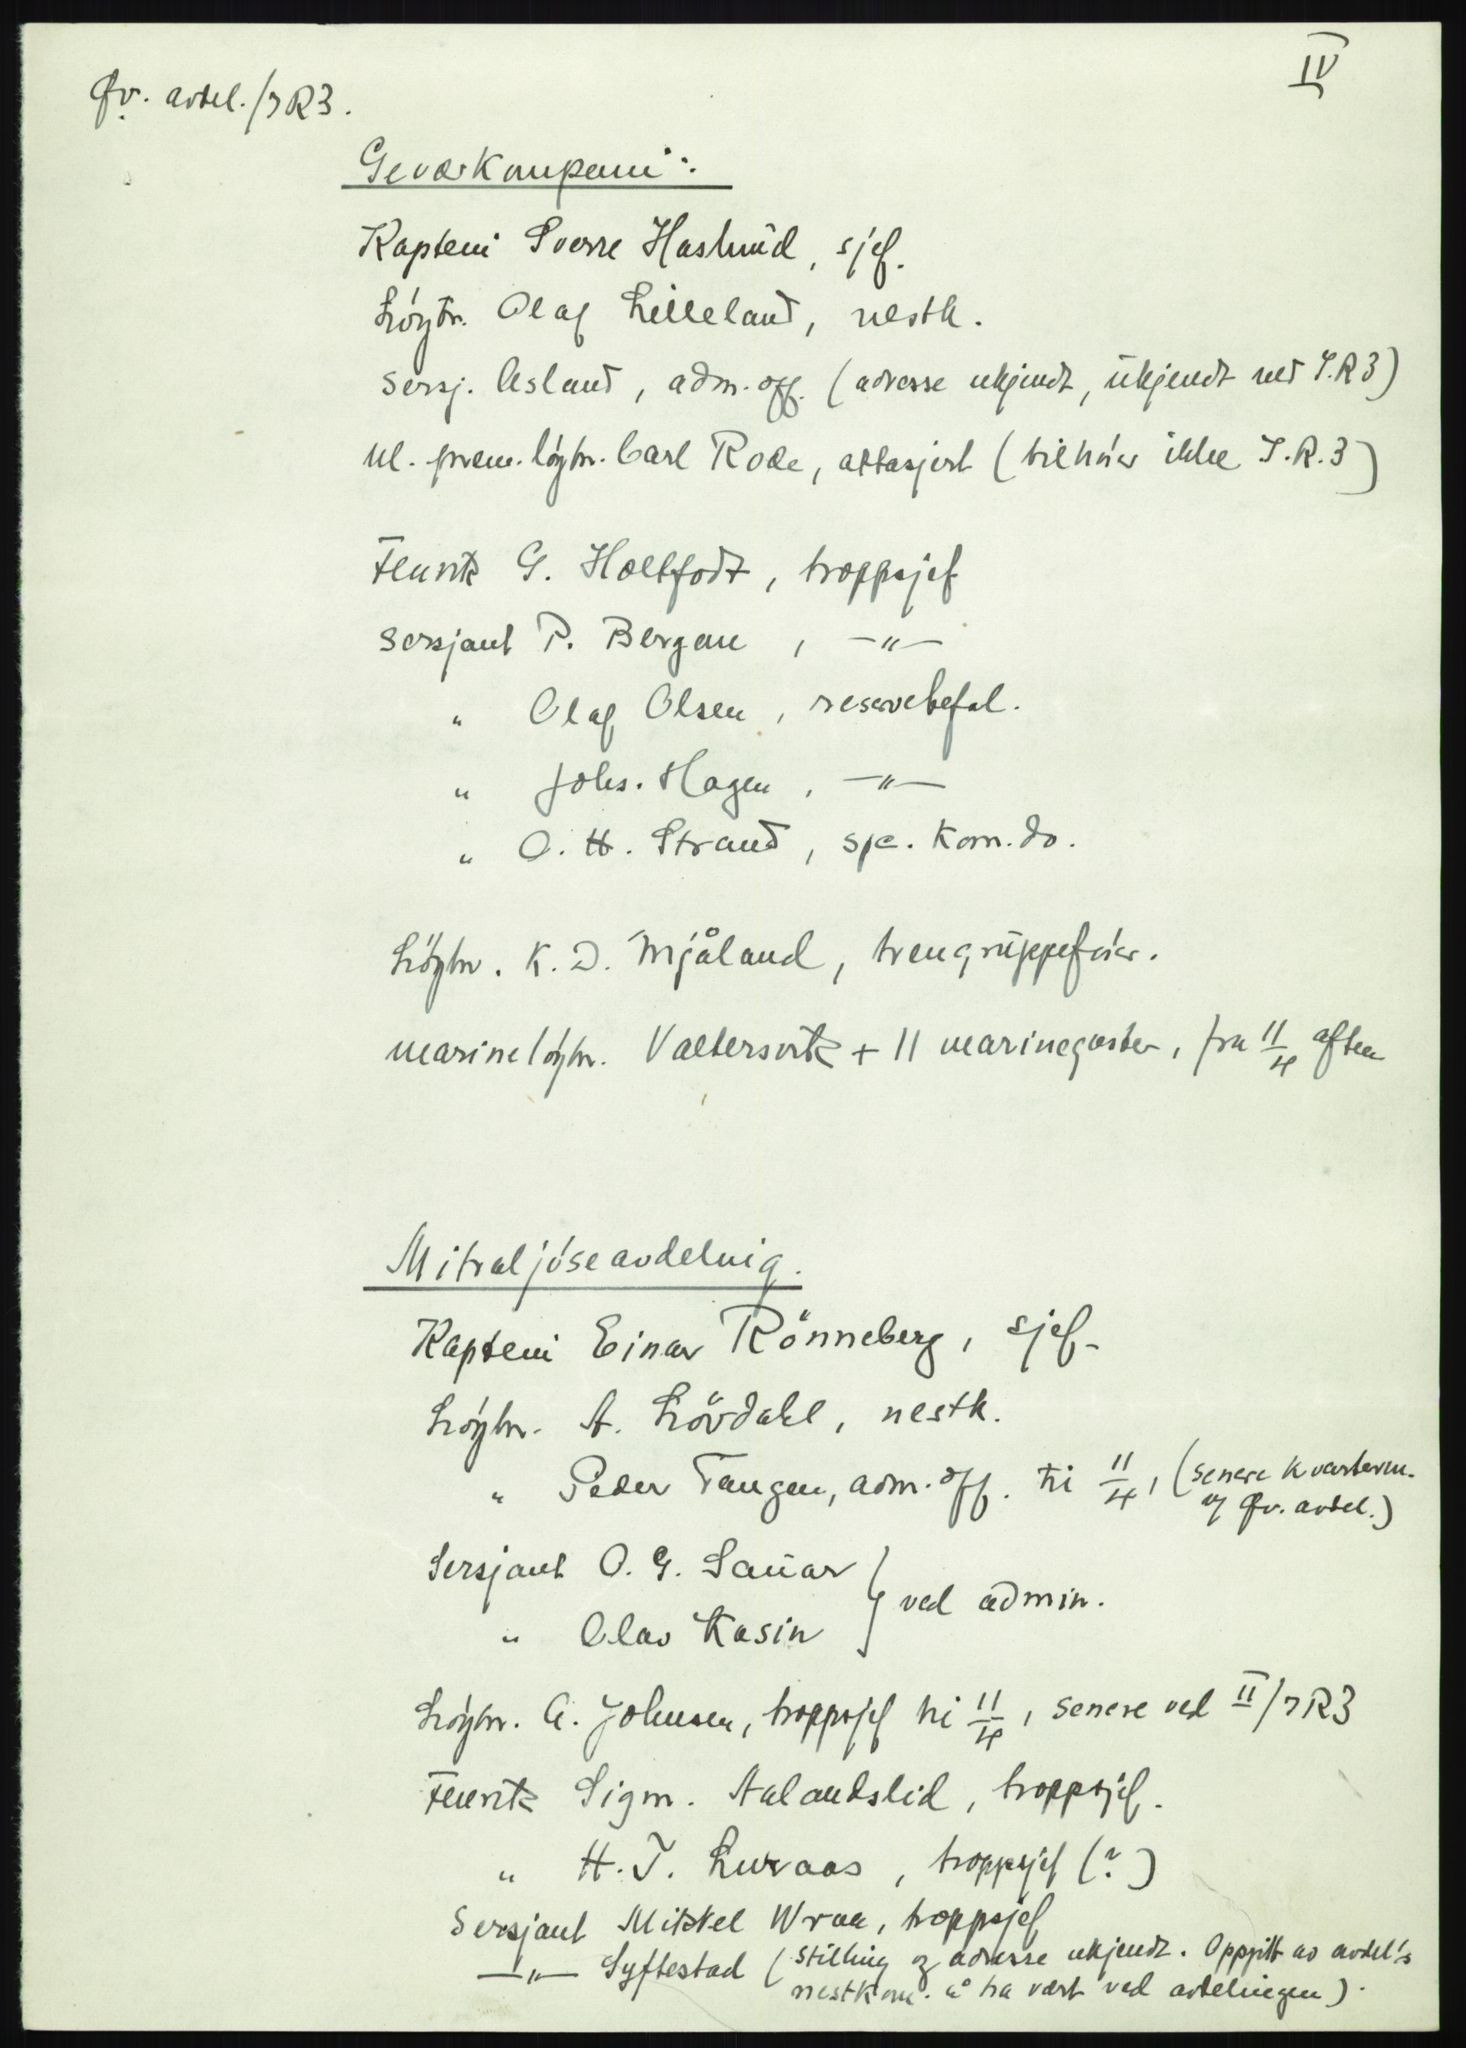 IV
Öv. avdel./IR3.
Geværkompani:
Kaptein Sverre Haslund, sjef.
Löytn. Olaf Lilleland, nestk.
Sersj. Åsland, adm. off. (adresse ukjendt, ukjendt ved I.R3)
Ul. prem. löytn. Carl Rode, attasjert (tilhörer ikke I.R.3)
Fenrik G. Holtfodt, troppsjef
Sersjant P. Bergan, —"—
" Olaf Olsen, reservebefal.
" Johs. Hagen, —"—
" O. H. Strand, spe. kom.do.
Löytn. K. D. Mjåland, trengruppeförer.
Marinelöytn. Valtersvik + 11 marinegaster, fra 11/4 aften
Mitraljöseavdelning.
Kaptein Einar Rönneberg, sjef.
Löytn. A. Lövdahl, nestk.
" Peder Tangen, adm. off. til 11/4, (senere kvarterm.
v/ Öv. avdel.)
Sersjant O. G. Sauar } ved admin.
" Olav Kasin
Löytn. A. Johnsen, troppsjef til 11/4, senere ved II/IR3
Fenrik Sigm. Aalandslid, troppsjef.
" H. T. Luraas, troppsjef (?)
Sersjant Mikkel Wraa, troppsjef
—"— Syftestad (stilling og adresse ukjendt. Oppgitt av avdel's
nestkom. å ha vært ved avdelingen).